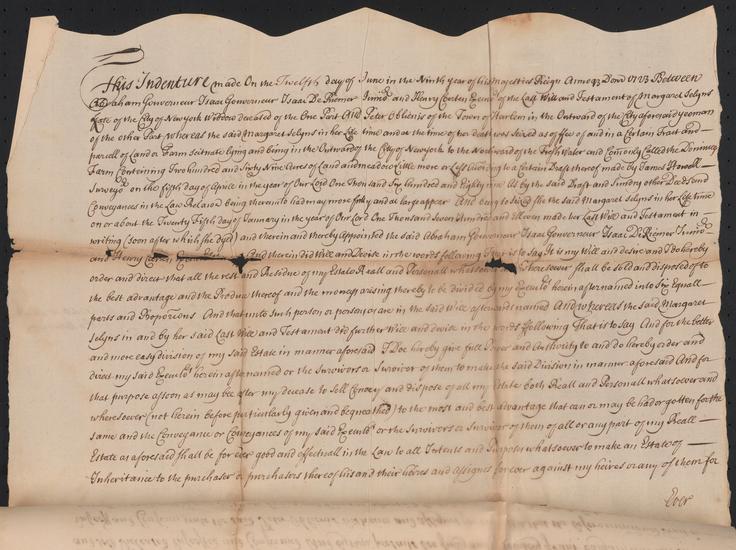 This Indenture made On the Twelfth day of June in the Ninth year of his majesties Reign Annoq Dom 1723 Between
Abraham Gouverneur Isaac Gouverneur Isaac De Riemer Junior and Henry Coerten Execurs of the Last Will and Testament of Margaret Selyns
Late of the City of New York Widdow deceased of the One Part And Peter Oblenis of the Town of Harlem in the Outward of the City aforesaid yeoman
of the other Part, whereas the said Margaret Selyns in her Life time and at the time of her death was Seized as of fee of and in a Certain Tract and
parcell of Land or Farm Scituate lying and being in the Outward of the City of New York to the Woodward of the Fresh Water and Comonly Called the Domines
Farm Containing Two hundred and Sixty Nine Acres of Land and meadow Little more or Less According to a Certain Draft thereof made by James Howell
Surveyor on the fifth day of Aprile in the year of Our Lord One Thousand Six hundred and Eighty nine As by the said Draft and Sundry other Deeds and
Conveyances in the Law Relacon being thereunto had may more fully and at large appear And being so seized She the said Margaret Selyns in her Life time
on or about the Twenty Fifth day of January in the year of Our Lord One Thousand Seven Hundred and Eleven made her Last Will and Testament in
writing (Soon after which she dyed) and therein and thereby Appointed the said Abraham Gouverneur Isaac Gouverneur Isaac De Riemer Junior
and Henry Coerten And therein did Will and Devise in the words following That is to Say It is my Will and desire and I do hereby
order and direct that all the rest and Residue of my Estate Reall and Personall whatsoever wheresoever shall be sold and disposed of to
the best advantage and the Produce thereof and the moneys arising thereby to be divided by my Execurs herein after named into Six Equall
parts and Proporcons And that unto Such person or persons as are in the said Will afterwards named And whereas the said Margaret
Selyns in and by her said Last Will and Testament did further Will and devise in the words following That is to Say And for the better
and more easy division of my said Estate in manner aforesaid I Doe hereby give full Power and Authority to and do hereby order and
direct my said Execurs herein after named or the Survivors or Survivor of them to make the said Division in manner aforesaid And for
that purpose as soon as may be after my decease to Sell Convey and dispose of all my Estate both Reall and Personall whatsoever and
wheresoever (not herein before particularly given and bequeathed) to the most and best advantage that can or may be had or gotten for the
same and the Conveyance or Conveyances of my said Execurs or the Survivors or Survivor of them of all or any part of my Reall
Estate as aforesaid Shall be for ever good and effectuall in the Law to all Intents and Purposes whatsoever to make an Estate of
Inheritance to the purchaser or purchasers thereof his and their heires and assignes for ever against my heires or any of them for
Ever